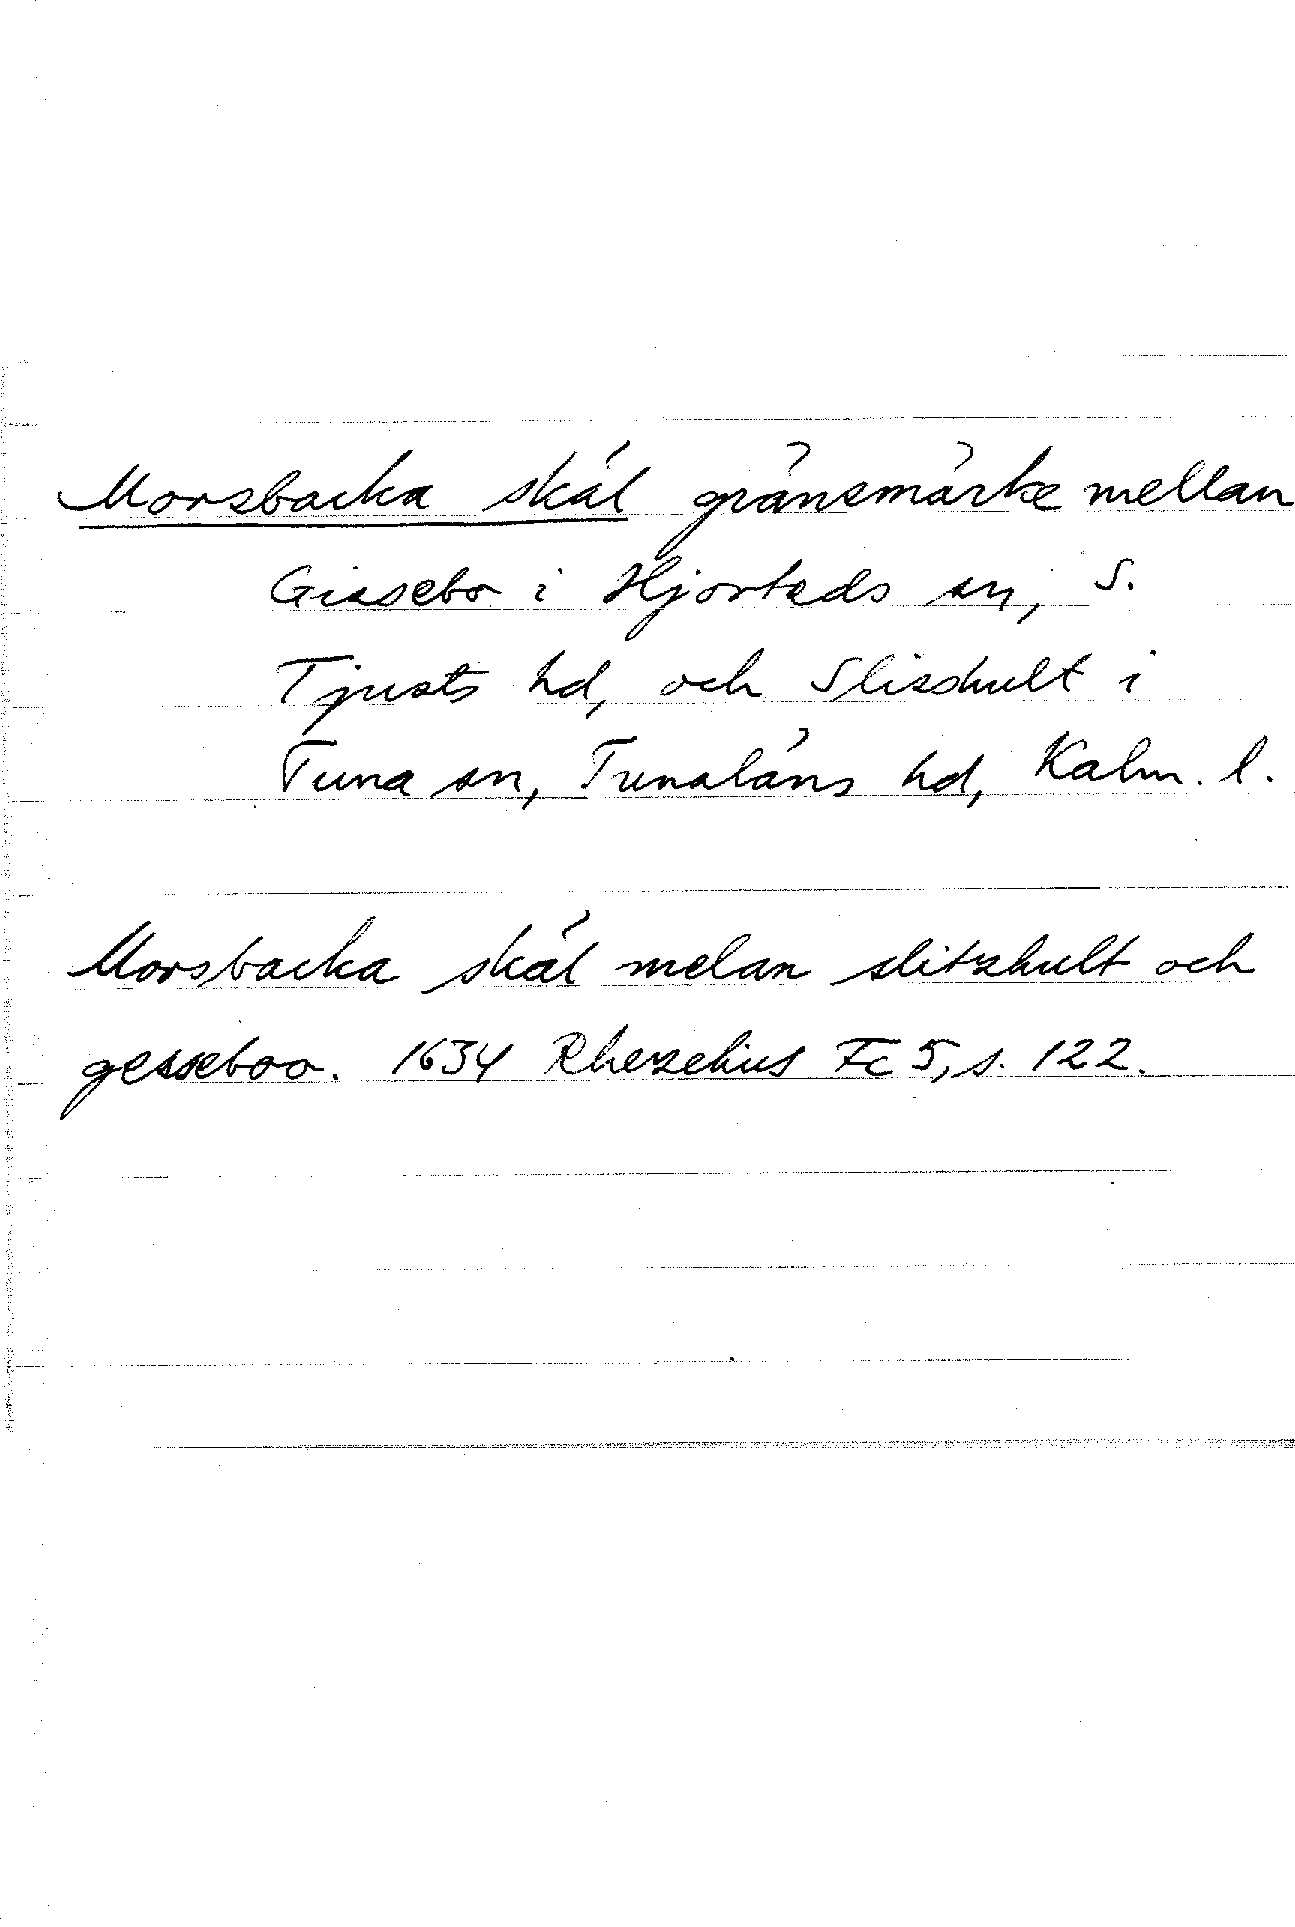 Morsbacka skäl gränsmärke mellan
Gissebo i Hjorteds sn, S.
Tjusts hd, och Slisshult i
Tuna sn, Tunaläns hd, Kalm. l.
Morsbacka skäl melan slitzhult och
gesseboo. 1634 Rhezelius Fc 5, s. 122.